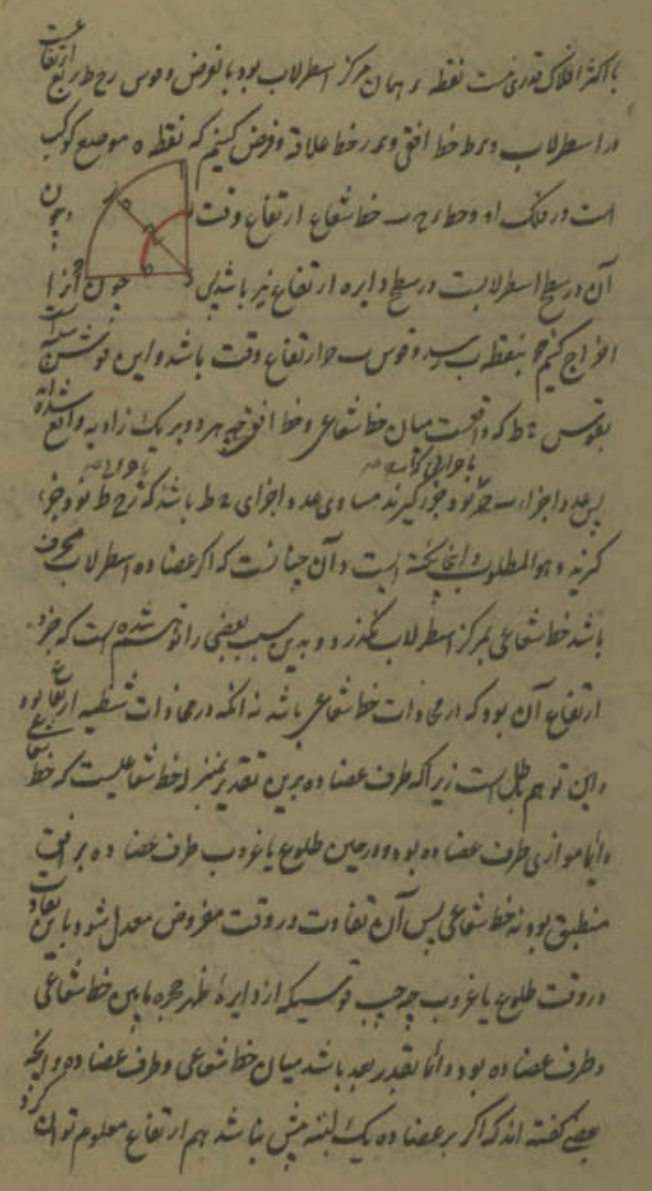 با اکثر افلاک قدری نیست نقطه ء همان مرکز اسطرلاب بود بالفرض وقوس رح ط ربع ارتفاعست
در اسطرلاب و ء ط خط افقی و ء ر خط علاقه و فرض کنیم که نقطه ه موضع کوکب
است در فلک او وخط ء ح ب خط شعاع ارتفاع وقت و چون
آن در سطح اسطرلابست در سطح دایره ارتفاع نیز باشد پس چون آنرا
اخراج کنیم بنقطه ب رسد و قوس ب ارتفاع وقت باشد و این قوس
بقوس ح ط که واقعست میان خط شعاعی و خط افق چه هر دو بر یک زاویه واقع شده اند
پس عدد اجزاء نود جزء گیرند مساوی عدد اجزای ح ط باشد که رح ط نود جزء
گیرند و هو المطلوب و اینجا است و آن چنانست که اگر عضاده اسطرلاب محرف
باشد خط شعاعی بمرکز اسطرلاب نگذرد و بدین سبب بعضی را توهم شده است که جزء
ارتفاع آن بود که در محاذات خط شعاعی باشد نه آنکه در محاذات شظیه ارتفاع بود
و این توهم باطل است زیرا که طرف عضاده برین تقدیر بمنزله خط شعاعیست که خط شعاعی
دایما موازی طرف عضاده بود و در حین طلوع یا غروب طرف عضاده بر افق
منطبق بود نه خط شعاعی پس آن تفاوت در وقت مفروض معدل شود باین تفاوت
در وقت طلوع یا غروب چه قوسیکه از دایره ظهر حجره مابین خط شعاعی
و طرف عضاده بود دائما بقدر بعد باشد میان خط شعاعی و طرف عضاده و آنچه
بعضی گفته اند که اگر بر عضاده یک لبنه بیش نباشد هم ارتفاع معلوم توان کرد